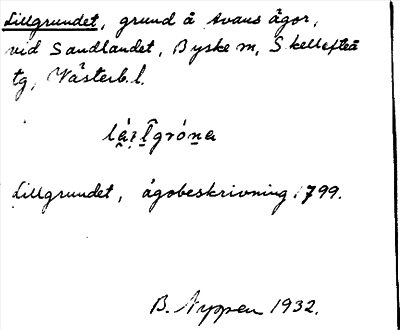 Lillgrundet, grund å Avans ägor,
vid Sandlandet, Byske m, Skellefteå
tg, Västerb. l.
Lillgrundet, ägobeskrivning 1799.
B. Nyppen 1932.